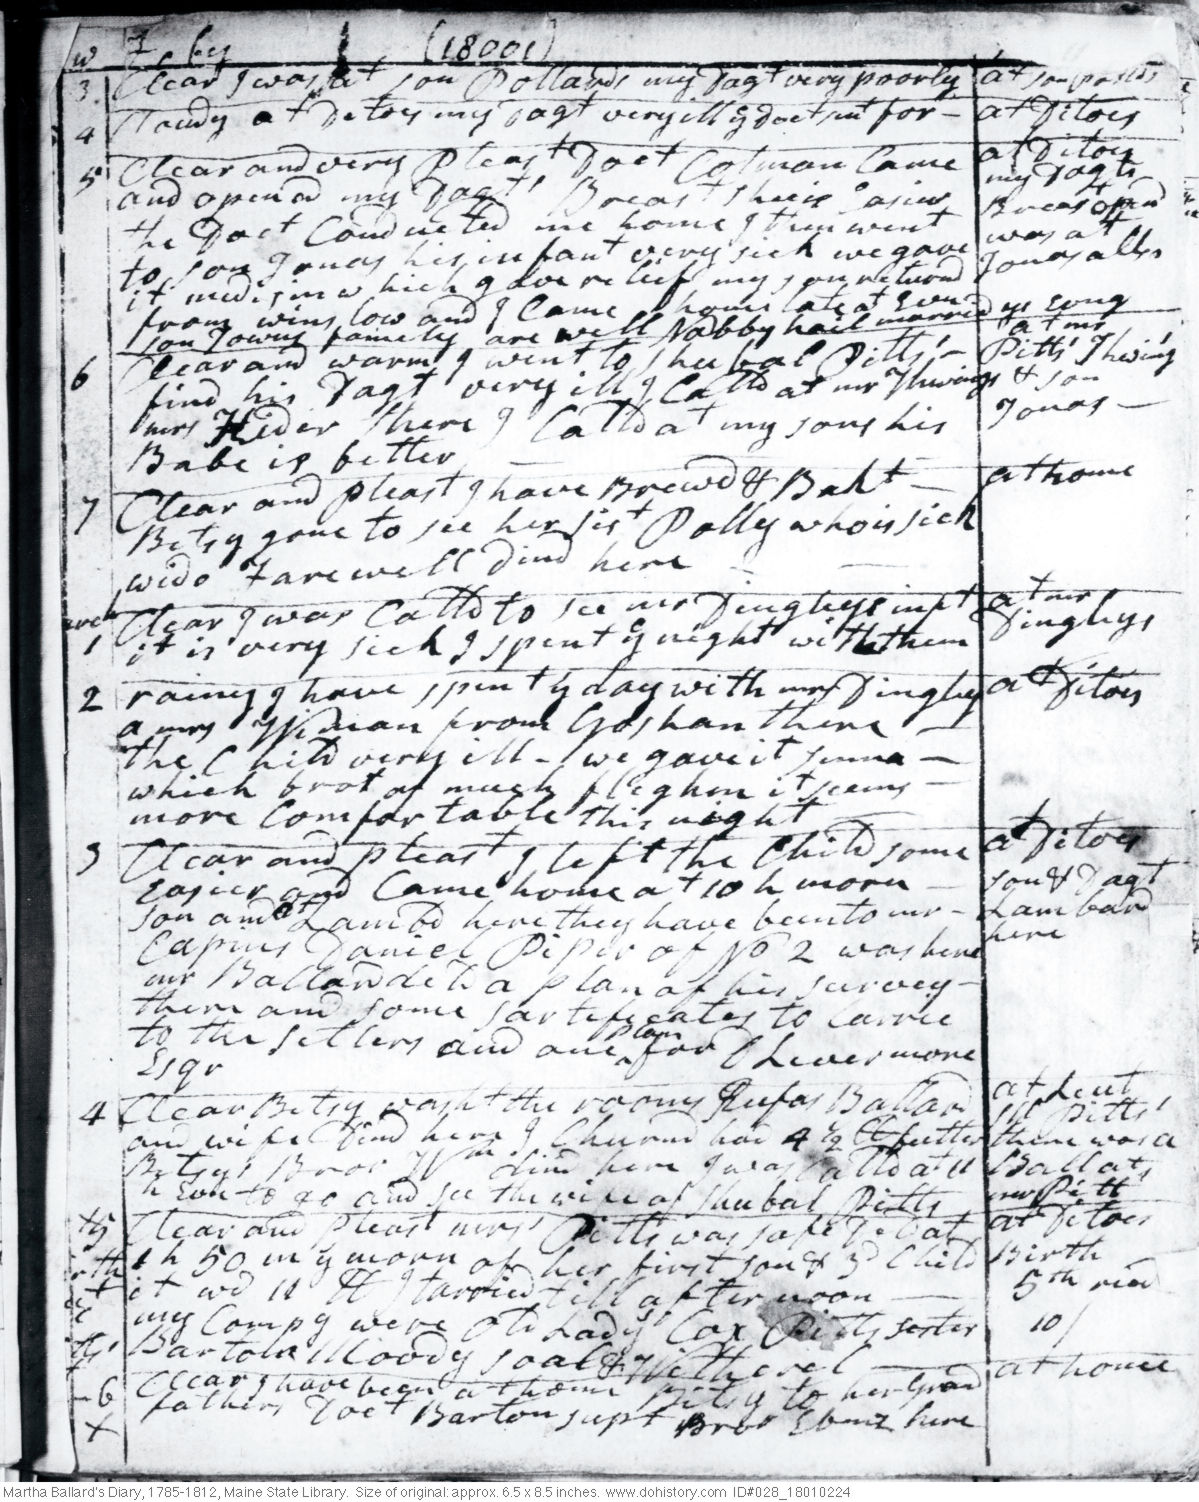 w 7 bry (18001)
3 Clear I was at son Pollards my Dagt very poorly at son polds
4 Cloudy at Ditoes my dagt very ill ye Doct sent for - at Ditoes
5 Clear and very Pleast Doct Colman Came at Ditoes
and opend my Dagts Breast shee is Easier my Dagts
the Doct Conducted me home I then went Breast opend
to son Jonas his infant very sick we gave was at
it medisin which gave relief my son returnd Jonas allso
from winslow and I Came home late at Evn
son Towns family are well Nabby hail married ys Evng
6 Clear and warm I went to Shubal Pitts' - at mr
find his Dagt very ill I Calld at mr Thwings Pitts' Thwing
mrs Hider there I Calld at my sons his & son
Babe is better Jonas -
7 Clear and pleast I have Brewd & Bakt - at home
Betsy gone to see her sist Polly who is sick
wido Farewell dind here -
1 Clear I was Calld to see mr Dingleys inft at mr
it is very sick I spent ye night with them Dingleys
2 rainy I have spent ye day with mrs Dingley at Ditoes
a mrs Wiman from Goshan there -
the Child very ill - we gave it senna -
which brot of much fleghm it seems -
more Comfortable this night
3 Clear and pleast I left the Child some at Ditoes
Easier and Came home at 10 h morn - son & Dagt
son and dt Lambd here they have been to mr - Lambard
Capins Daniel Piper of No 2 was here here
mr Ballard deld a plan of his survey -
there and some sartificates to Carrie
to the setlers and one plan for Livermore
Esqr
4 Clear Betsy washt the rooms Rufas Ballard at Leut
and wife dind here I Churnd had 4 1/2 lb butter Sh Pitts'
Betsys' Bror Wm dind here I was Calld at 11 there was a
h Evn to go and see the wife of Shubal Pitts Ball at mr Pitt
5 Clear and pleast mrs' Pitts was safe Dd at at Ditoes
1 h 50 m ye morn of her first son & 3d Child Birth
it wd 11 lb I tarried till after noon - 5th recd
my Compy were old Lady Cox Pitts sester 10/
Bartoln Moody soal & Witherel
6 Clear I have been at home Betsy to her Grand at home
X fathers Doct Barton supt Bror Ebenz here
Martha Ballard's Diary, 1785-1812, Maine State Library. Size of original: approx. 6.5 x 8.5 inches. www.dohistory.com ID#028_18010224